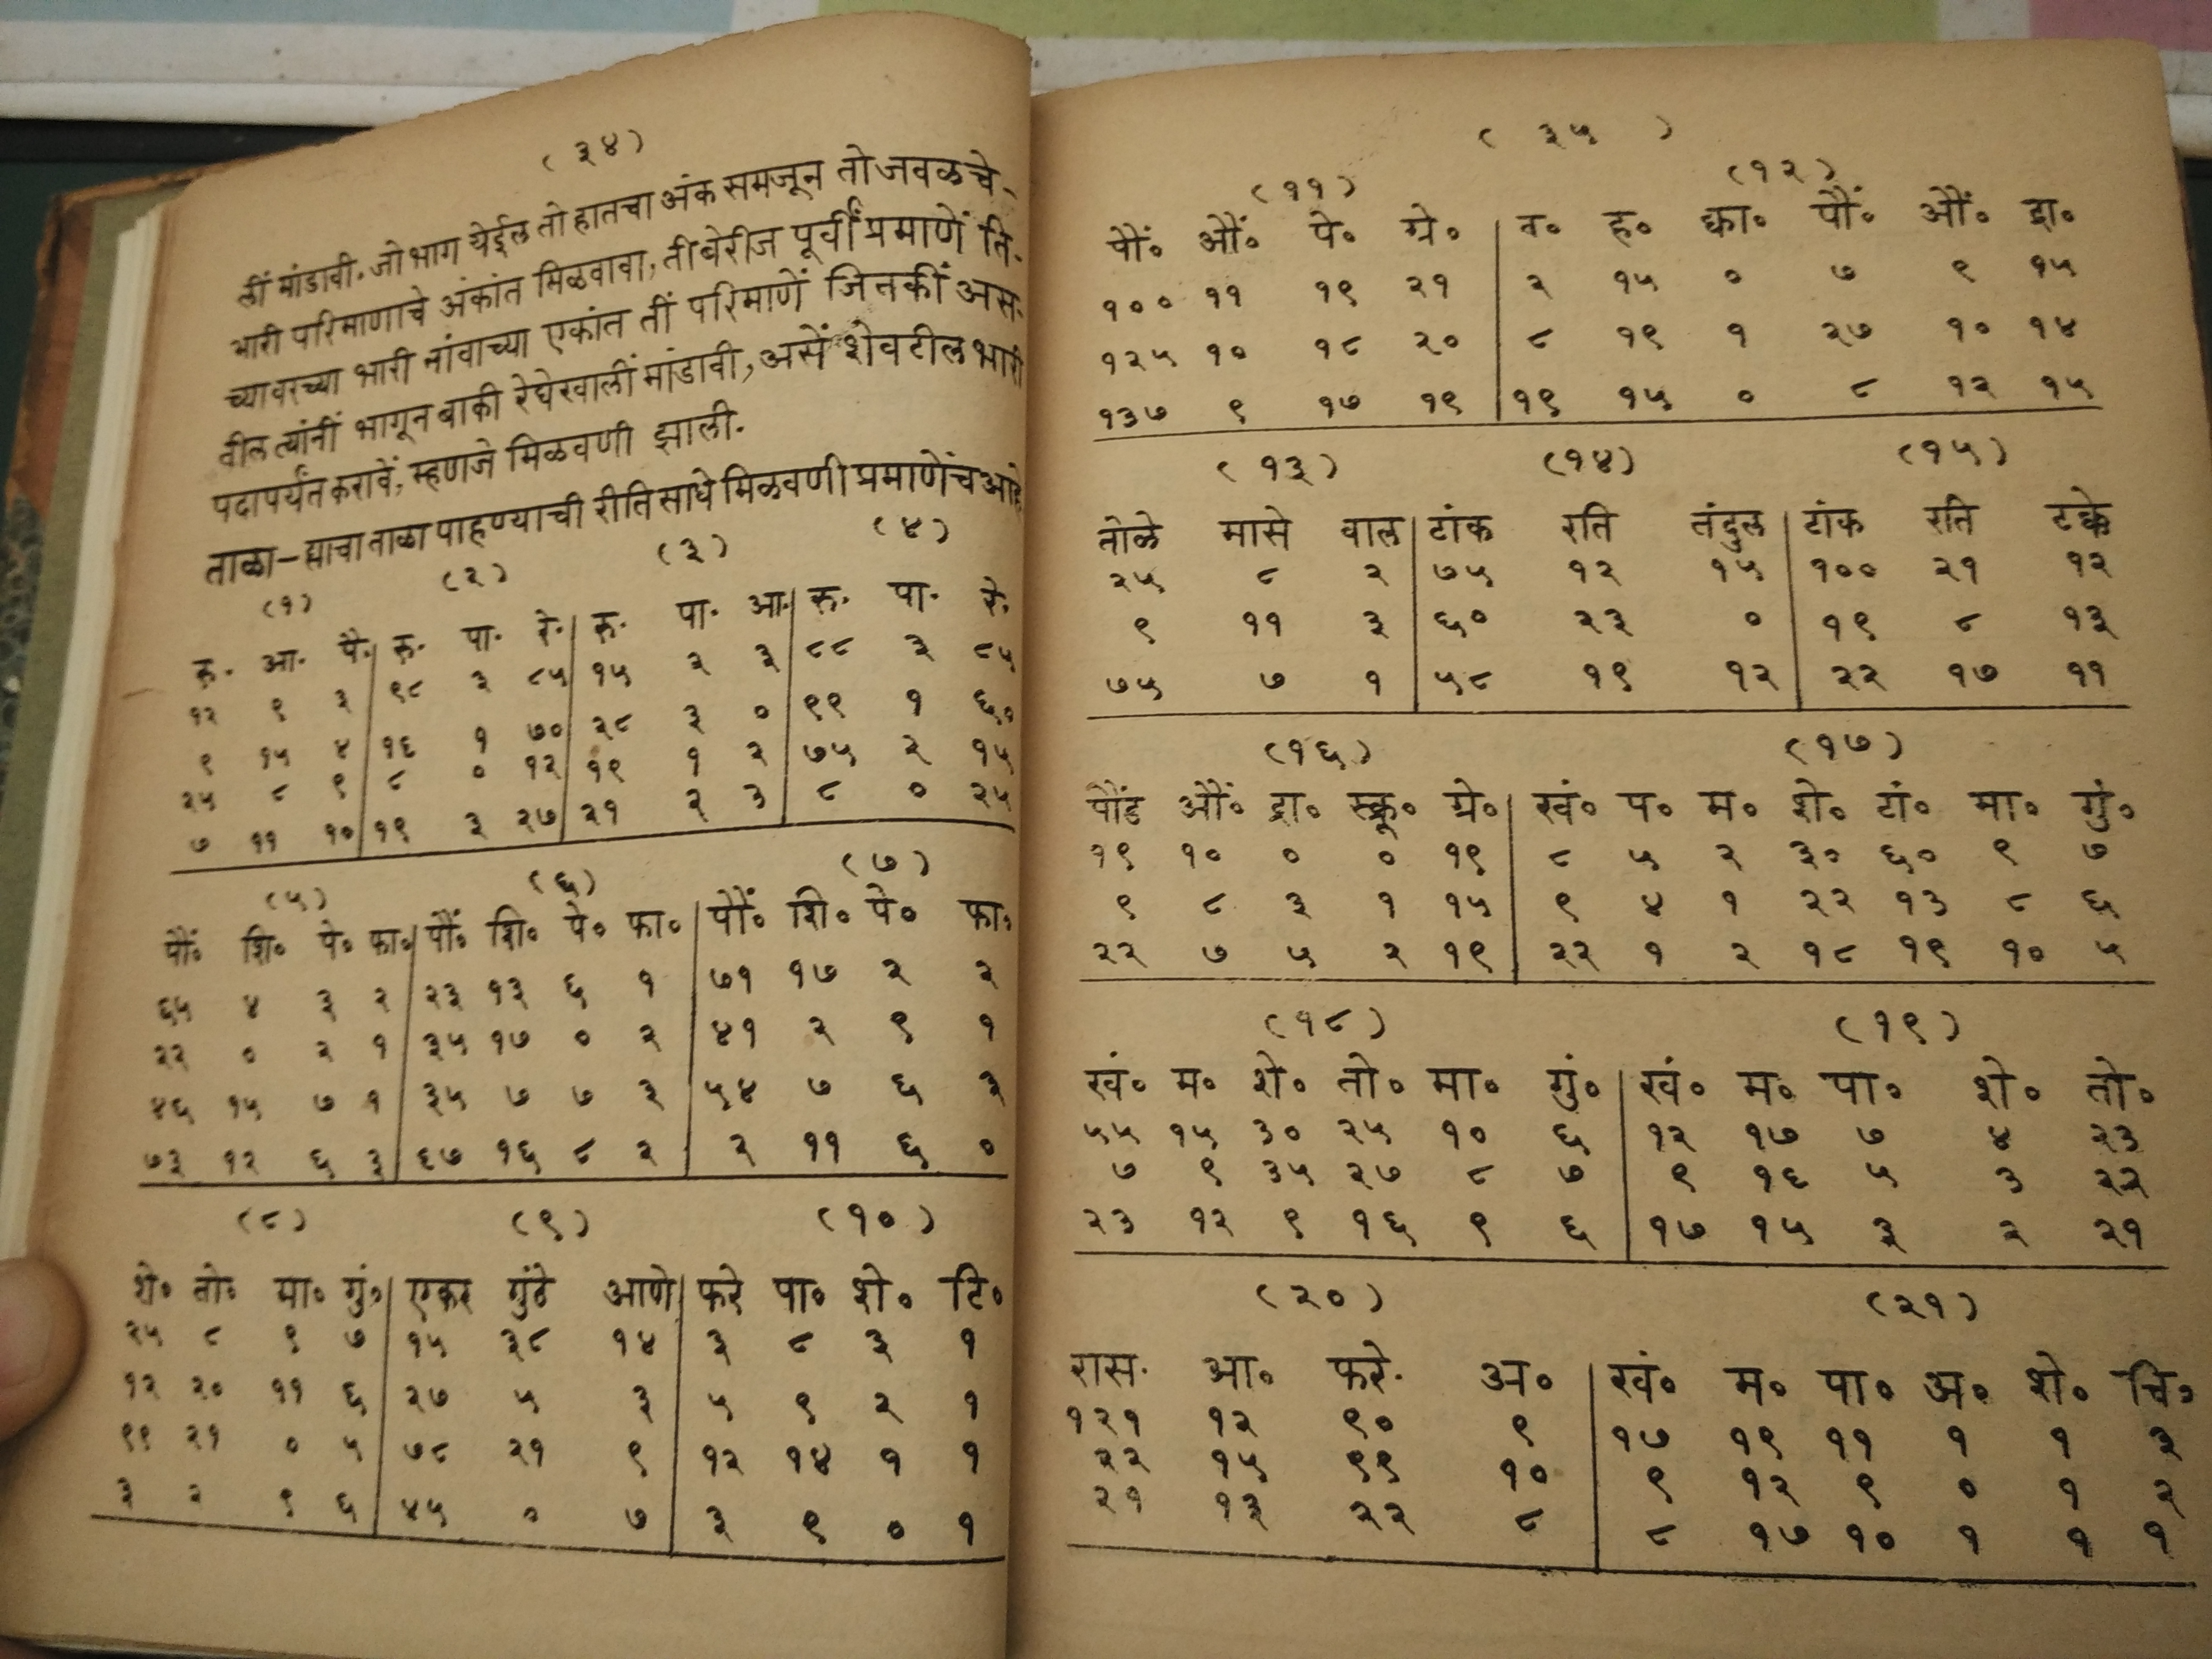 (३४)
लीं मांडावी. जो भाग येईल तो हातचा अंक समजून तो जवळचे-
भारी परिमाणाचे अंकांत मिळवावा, ती बेरीज पूर्वीं प्रमाणें ति-
च्यावरच्या भारी नांवाच्या एकांत तीं परिमाणें जितकीं अस-
तील त्यांनीं भागून बाकी रेघेखालीं मांडावी, असें शेवटील भारी
पदापर्यंत करावें, म्हणजे मिळवणी झाली.
ताळा-ह्याचा ताळा पाहण्याची रीति साधे मिळवणी प्रमाणेंच आहे
(१) (२) (३) (४)
रु. आ. पै. रु. पा. रे. रु. पा. आ. रु. पा. रे.
१२ ९ ३ ९८ ३ ८५ १५ २ ३ ८८ ३ ८५
९ १५ ४ १६ १ ७० २८ ३ ० ९९ १ ६०
२५ ८ ९ ८ ० १२ १९ १ २ ७५ २ १५
७ ११ १० १९ ३ २७ २१ २ ३ ८ ० २५
(५) (६) (७)
पौं. शि. पे. फा. पौं. शि. पे. फा. पौं. शि. पे. फा.
६५ ४ ३ २ २३ १३ ६ १ ७१ १७ २ २
२२ ० २ १ ३५ १७ ० २ ४१ २ ९ १
४६ १५ ७ १ ३५ ७ ७ ३ ५४ ७ ६ ३
७३ १२ ६ ३ ६७ १६ ८ २ २ ११ ६ ०
(८) (९) (१०)
शे. तो. मा. गुं. एकर गुंठे आणे फरे पा. शे. टि.
२५ ८ ९ ७ १५ ३८ १४ ३ ८ ३ १
१२ २० ११ ६ २७ ५ ३ ५ ९ २ १
९९ २१ ० ५ ७८ २१ ९ १२ १४ १ १
३ २ ९ ६ ४५ ० ७ ३ ९ ० १
( ३५ )
(११) (१२)
पौं. औं. पे. ग्रे. न. ह. क्वा. पौं. औं. द्रा.
१०० ११ १९ २१ २ १५ ० ७ ९ १५
१२५ १० १८ २० ८ १९ १ २७ १० १४
१३७ ९ १७ १९ १९ १५ ० ८ १२ १५
(१३) (१४) (१५)
तोळे मासे वाल टांक रति तंदुल टांक रति टक्के
२५ ८ २ ७५ १२ १५ १०० २१ १२
९ ११ ३ ६० २३ ० १९ ८ १३
७५ ७ १ ५८ १९ १२ २२ १७ ११
(१६) (१७)
पौंड औं. द्रा. स्क्रू. ग्रे. खं. प. म. शे. टां. मा. गुं.
१९ १० ० ० १९ ८ ५ २ ३० ६० ९ ७
९ ८ ३ १ १५ ९ ४ १ २२ १३ ८ ६
२२ ७ ५ २ १९ २२ १ २ १८ १९ १० ५
(१८) (१९)
खं. म. शे. तो. मा. गुं. खं. म. पा. शे. तो.
५५ १५ ३० २५ १० ६ १२ १७ ७ ४ २३
७ ९ ३५ २७ ८ ७ ९ १६ ५ ३ २२
२३ १२ ९ १६ ९ ६ १७ १५ ३ २ २१
(२०) (२१)
रास. आ. फरे. अ. खं. म. पा. अ. शे. चि.
१२१ १२ ९० ९ १७ १९ ११ १ १ ३
२२ १५ ९९ १० ९ १२ ९ ० १ २
२१ १३ २२ ८ ८ १७ १० १ १ १